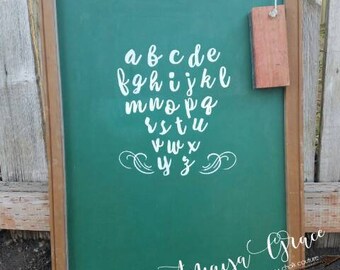 a b c d e
f g h i j k l
m n o p q
r s t u
v w x
y z
Grace